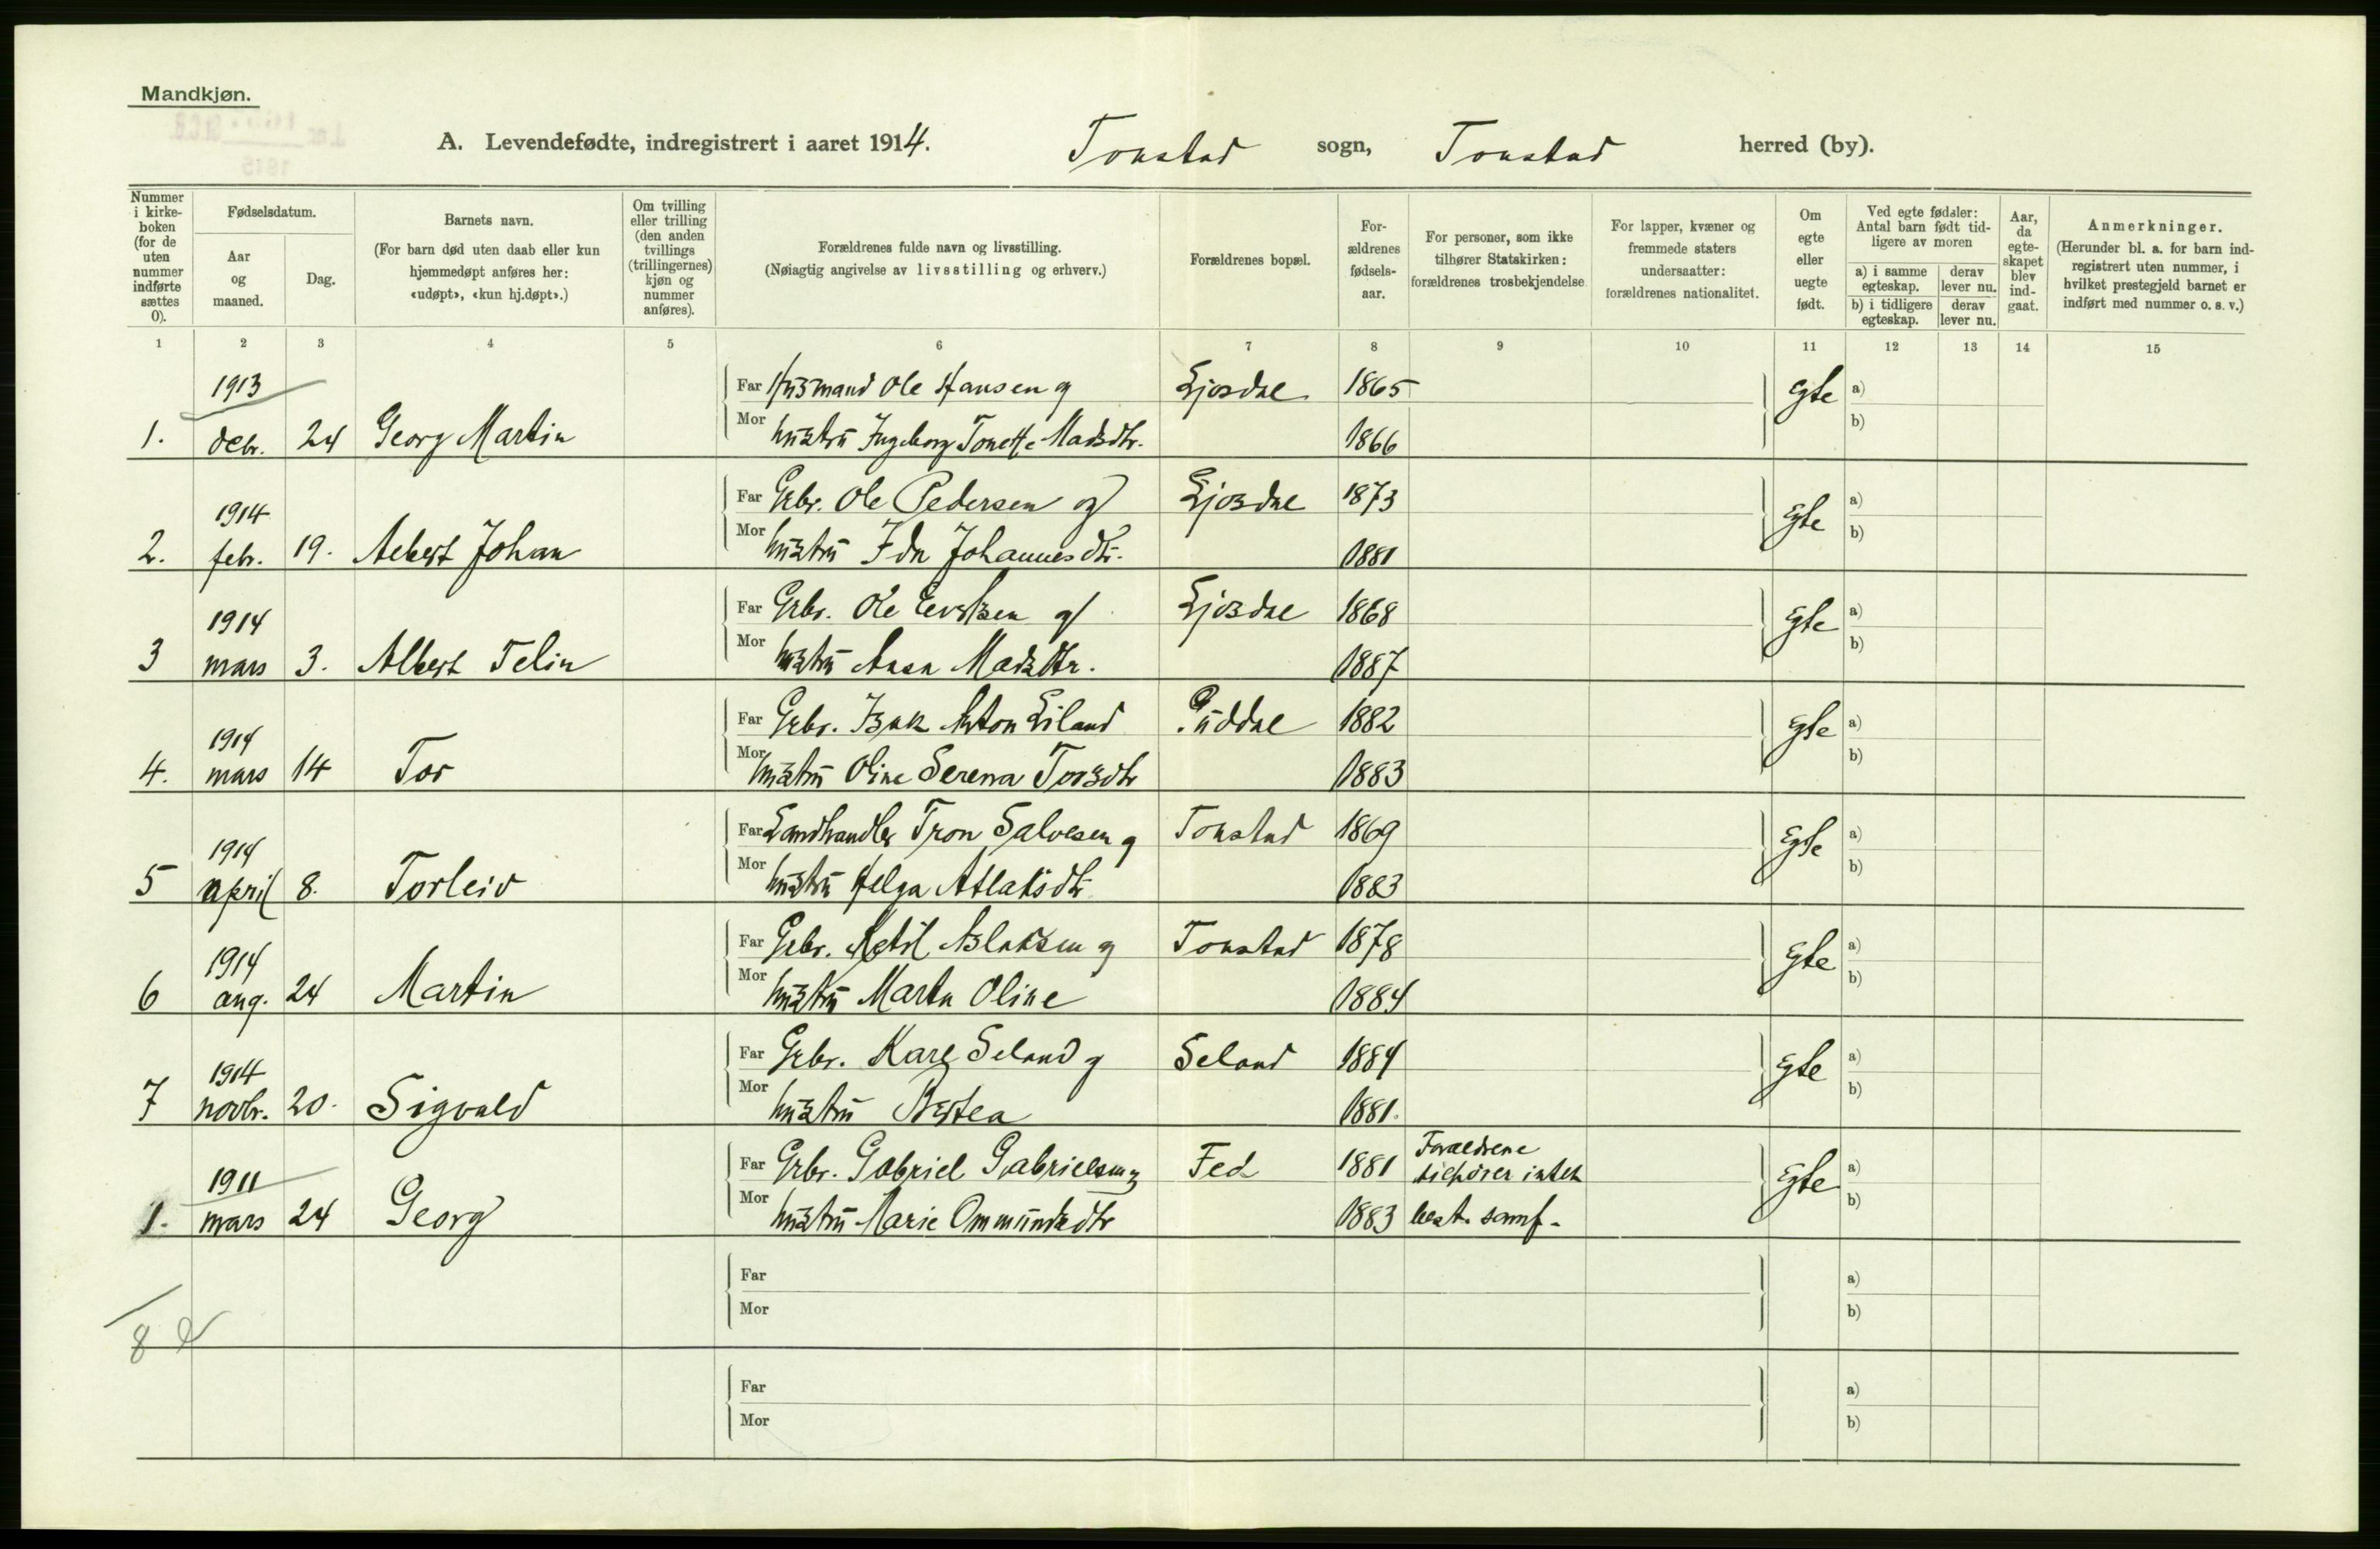 Mandkjøn.
A. Levendefødte, indregistrert i aaret 1914. Tonstad sogn, Tonstad herred (by).
Nummer i kirke- boken (for de uten nummer indførte sættes 0).
Fødselsdatum.
Aar og maaned.
Dag.
Barnets navn.
(For barn død uten daab eller kun hjemmedøpt anføres her: «udøpt», «kun hj.døpt».)
Om tvilling eller trilling (den anden tvillings (trillingernes) kjøn og nummer anføres).
Forældrenes fulde navn og livsstilling.
(Nøiagtig angivelse av livsstilling og erhverv.)
Forældrenes bopæl.
For- ældrenes fødsels- aar.
For personer, som ikke tilhører Statskirken: forældrenes trosbekjendelse.
For lapper, kvæner og fremmede staters undersaatter: forældrenes nationalitet.
Om egte eller uegte født.
Ved egte fødsler: Antal barn født tid- ligere av moren
a) i samme egteskap.
derav lever nu.
b) i tidligere egteskap.
derav lever nu.
Aar, da egte- skapet blev ind- gaat.
Anmerkninger.
(Herunder bl. a. for barn ind- registrert uten nummer, i hvilket prestegjeld barnet er indført med nummer o. s. v.)
1 2 3 4 5 6 7 8 9 10 11 12 13 14 15
1913 Far Husmand Ole Hansen og Ljosdal 1865 Egte a)
1. debr. 24 Georg Martin Mor hustru Ingeborg Tonette Madsdtr. 1866 b)
1914 Far Grbr. Ole Pedersen og Ljosdal 1873 Egte a)
2. febr. 19. Albert Johan Mor hustru Ida Johannesdtr. 1881 b)
1914 Far Grbr. Ole Evertsen og Ljosdal 1868 Egte a)
3 mars 3. Albert Telin Mor hustru Anna Madsdtr. 1887 b)
1914 Far Grbr. Isak Anton Eiland Guddal 1882 Egte a)
4. mars 14 Tor Mor hustru Oline Serena Torsdtr 1883 b)
1914 Far Landhandler Tron Salvesen og Tonstad 1869 Egte a)
5 april 8. Torleiv Mor hustru Helga Atlaksdtr. 1883 b)
1914 Far Grbr. Ketil Aslaksen og Tonstad 1878 Egte a)
6 aug. 24 Martin Mor hustru Marta Oline 1884 b)
1914 Far Grbr. Karl Seland og Seland 1884 Egte a)
7 novbr. 20. Sigvald Mor hustru Bertea 1881. b)
1911 Far Grbr. Gabriel Gabrielsen og Fed 1881 Forældrene tilhører intet Egte a)
1. mars 24 Georg Mor hustru Marie Ommundsdtr 1883 best. samf. b)
Far a)
Mor b)
8
Far a)
Mor b)